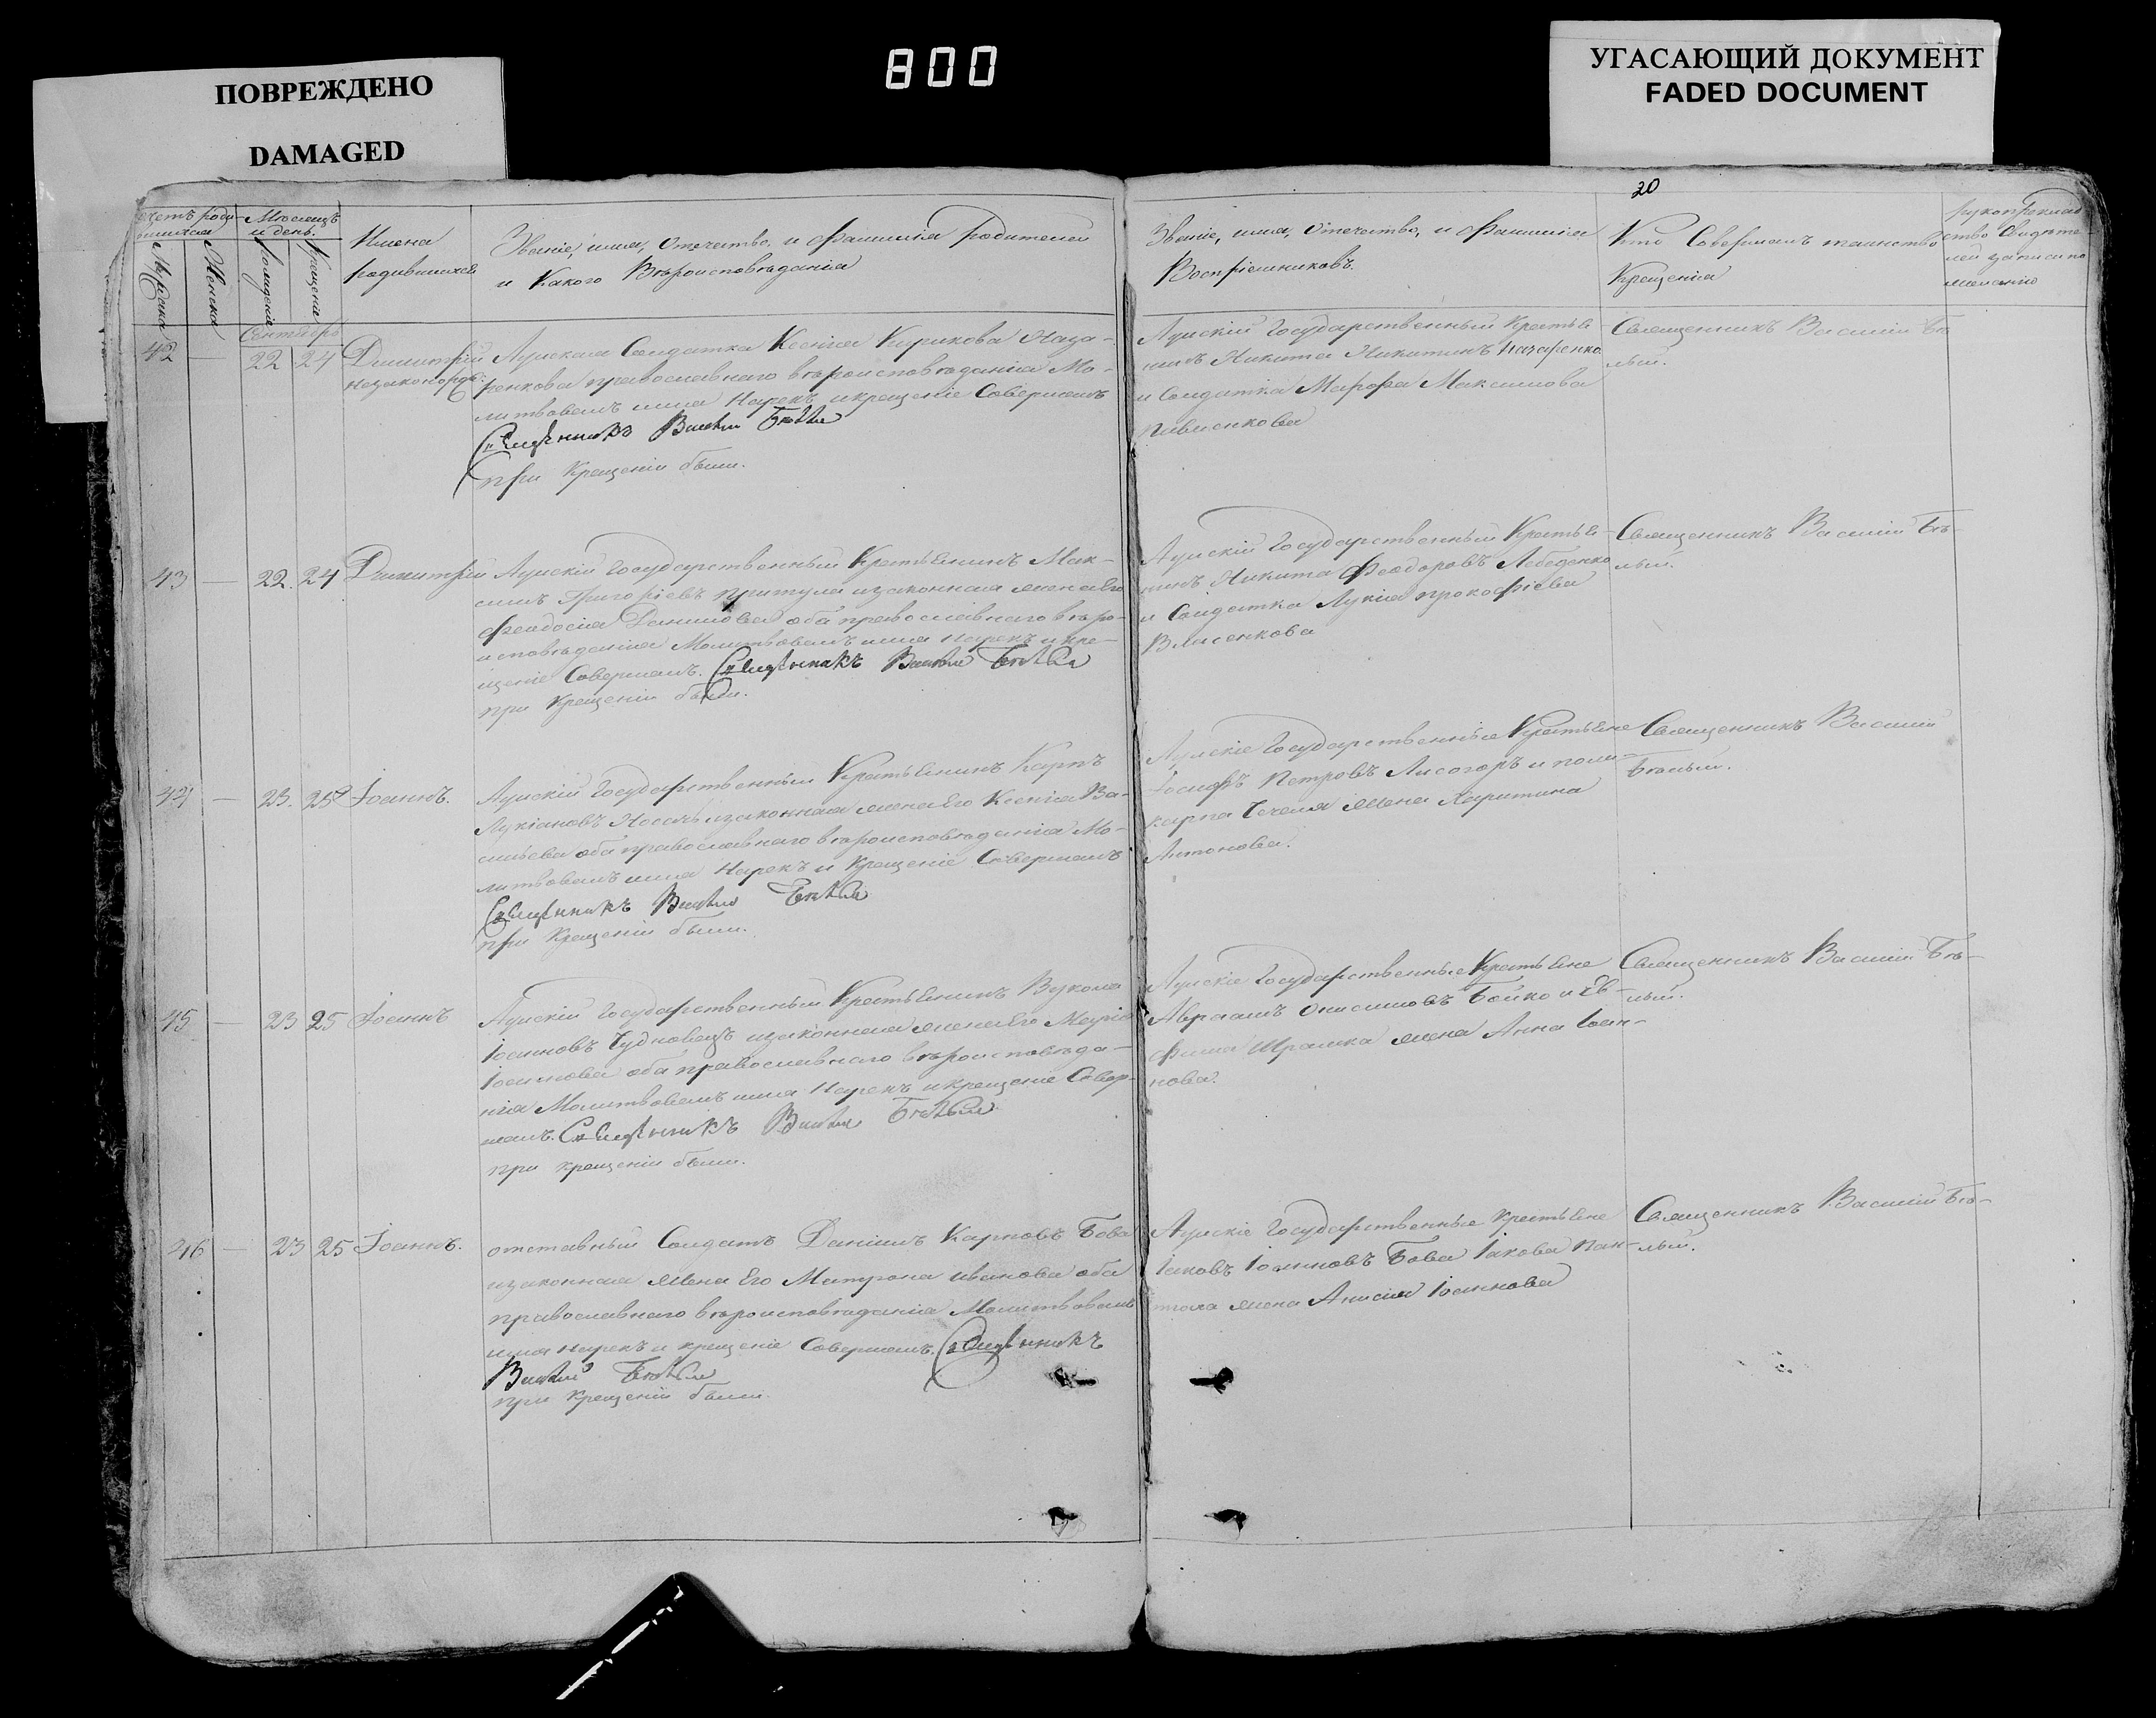 800
ПОВРЕЖДЕНО
DAMAGED
УГАСАЮЩИЙ ДОКУМЕНТ
FADED DOCUMENT
20
Мѣсяцъ
и день.
Имена
родившихся
Званіе, имя, отечество, и фамилія родителей
и Какого Вѣроисповѣданія
Званіе, имя, отечество, и фамилія
Воспріемниковъ.
Кто Совершалъ таинство
Крещенія
Мужска
Женска
рожденіе
крещеніе
Сентябрь
42 — 22 24 Димитрій
незаконорд:
Солдатка Ксенія Кирикова Наза-
ренкова православнаго вѣроисповѣданія Мо-
литвовалъ имя Нарекъ и крещеніе Совершалъ
Священникъ Василій Бѣлый
при Крещеніи были.
Государственный Крестья-
нинъ Никита Никитинъ Назаренко
и Солдатка Марфа Максимова
Священникъ Василій Бѣ-
лый.
43 — 22. 24 Димитрій
Государственный Крестьянинъ Мак-
симъ Григоріевъ Притула и законная жена Его
Феодосія Данилова оба православнаго вѣро-
исповѣданія Молитвовалъ имя Нарекъ и кре-
щеніе Совершалъ. Священникъ Василій Бѣлый
при Крещеніи были.
Государственный Крестья-
нинъ Никита Феодоровъ Лебеденко
и Солдатка Лукія Прокофіева
Власенкова
Священникъ Василій Бѣ-
лый.
44 — 23. 25 Іоаннъ.
Государственный Крестьянинъ Карпъ
Лукіановъ Носачь и законная жена Его Ксенія Ва-
сильева оба православнаго вѣроисповѣданія Мо-
литвовалъ имя Нарекъ и Крещеніе Совершалъ
Священникъ Василій Бѣлый
при Крещеніи были.
Государственные Крестьяне
Іосифъ Петровъ Лисогоръ и Поли-
карпа Чечеля жена Харитина
Антонова.
Священникъ Василій
Бѣлый.
45 — 23 25 Іоаннъ
Государственный Крестьянинъ Вукола
Іоанновъ Чудновецъ и законная жена Его Марія
Іоаннова оба православнаго вѣроисповѣда-
нія Молитвовалъ имя Нарекъ и крещеніе Совер-
шалъ. Священникъ Василій Бѣлый
при крещеніи были.
Государственные Крестьяне
Авраамъ Онисимовъ Бойко и Ев-
фима Шрамка жена Анна Іоан-
нова.
Священникъ Василій Бѣ-
лый.
46 — 23 25 Іоаннъ.
отставный Солдатъ Даніилъ Карповъ Бова
и законная жена Его Матрона Иванова оба
православнаго вѣроисповѣданія Молитвовалъ
имя нарекъ и крещеніе Совершалъ. Священникъ
Василій Бѣлый
при Крещеніи были.
Государственные Крестьяне
Іаковъ Іоанновъ Бова Іакова
жена Анисія Іоаннова
Священникъ Василій Бѣ-
лый.